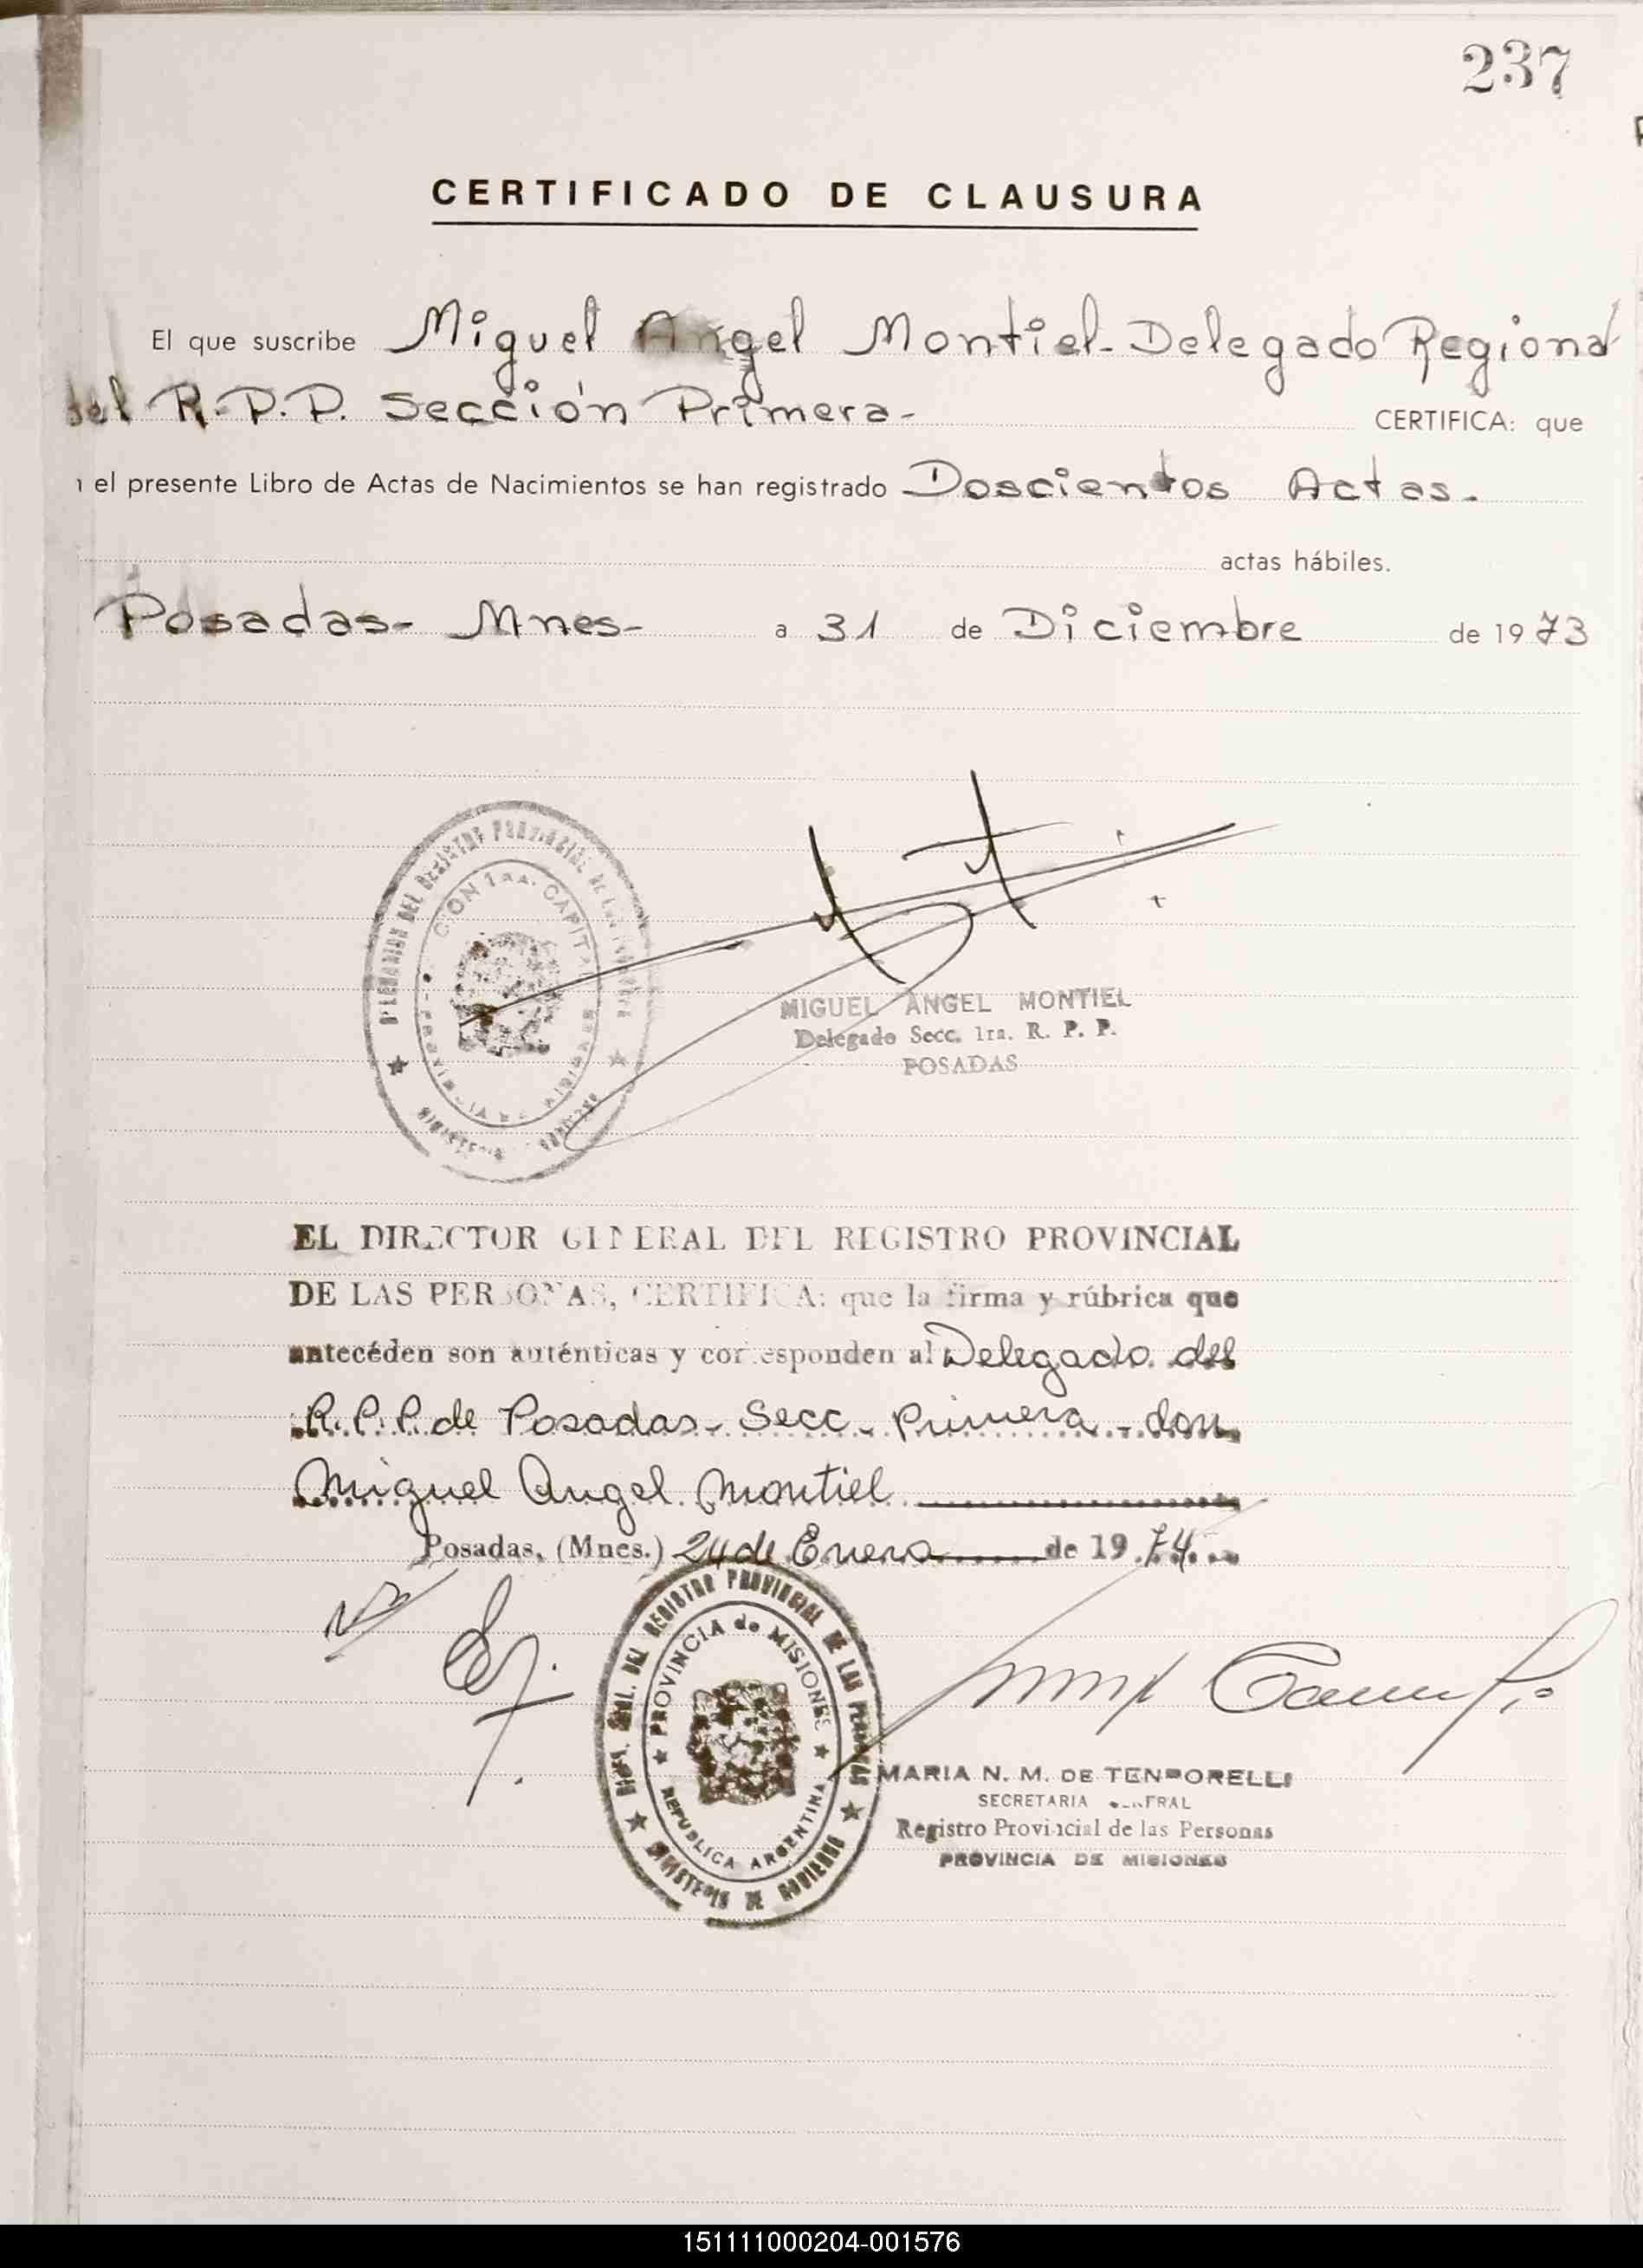 237
CERTIFICADO DE CLAUSURA
El que suscribe Miguel Angel Montiel - Delegado Regional
del R.P.P. Sección Primera - CERTIFICA: que
el presente Libro de Actas de Nacimientos se han registrado Doscientos Actas.
actas hábiles.
Posadas - Mnes - a 31 de Diciembre de 1973
MIGUEL ANGEL MONTIEL
Delegado Secc. 1ra. R. P. P.
POSADAS
EL DIRECTOR GENERAL DEL REGISTRO PROVINCIAL
DE LAS PERSONAS, CERTIFICA: que la firma y rúbrica que
antecéden son auténticas y corresponden al Delegado del
R.P.P. de Posadas - Secc - Primera - don
Miguel Angel Montiel
Posadas, (Mnes.) 24 de Enero de 1974
GRAL. DEL REGISTRO PROVINCIAL DE LAS PERSONAS
PROVINCIA de MISIONES
REPUBLICA ARGENTINA
MINISTERIO DE GOBIERNO
MARIA N. M. DE TEMPORELLI
SECRETARIA GENERAL
Registro Provincial de las Personas
PROVINCIA DE MISIONES
151111000204-001576